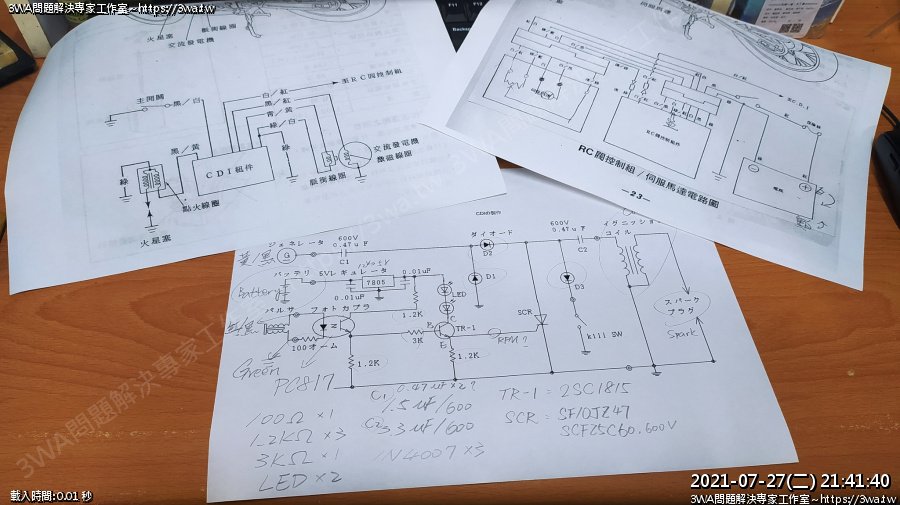 3WA問題解決專家工作室~https://3wa.tw
3WA問題解決專家工作室~https://3wa.tw
火星塞
交流發電機
主開關
黑／白
白／紅
黑／紅
青／黃
綠／白
至RC閥控制組
黑／黃
CDI組件
綠
綠
脈衝線圈
交流發電機
激磁線圈
點火線圈
火星塞
伺服馬達
至C.D.I
RC閥控制組
電瓶
RC閥控制組／伺服馬達電路圖
—23—
CDIの製作
ジェネレータ
G
600V
0.47uF
C1
ダイオード
D2
600V
0.47uF
C2
イグニッション
コイル
バッテリ
5Vレギュレータ
7805
0.01uF
0.01uF
LED
D1
D3
Battery
パルサ
フォトカプラ
1.2K
C
B
TR-1
E
3K
SCR
RPM?
kill SW
スパーク
プラグ
Spark
100オーム
1.2K
1.2K
Green
PC817
C1 0.47uF×2?
1.5uF/600
C2 3.3uF/600
1N4007×3
TR-1 = 2SC1815
SCR = SF10JZ47
SCF25C60.600V
100Ω×1
1.2KΩ×3
3KΩ×1
LED×2
3WA問題解決專家工作室~https://3wa.tw
載入時間:0.01 秒
2021-07-27(二) 21:41:40
3WA問題解決專家工作室~https://3wa.tw